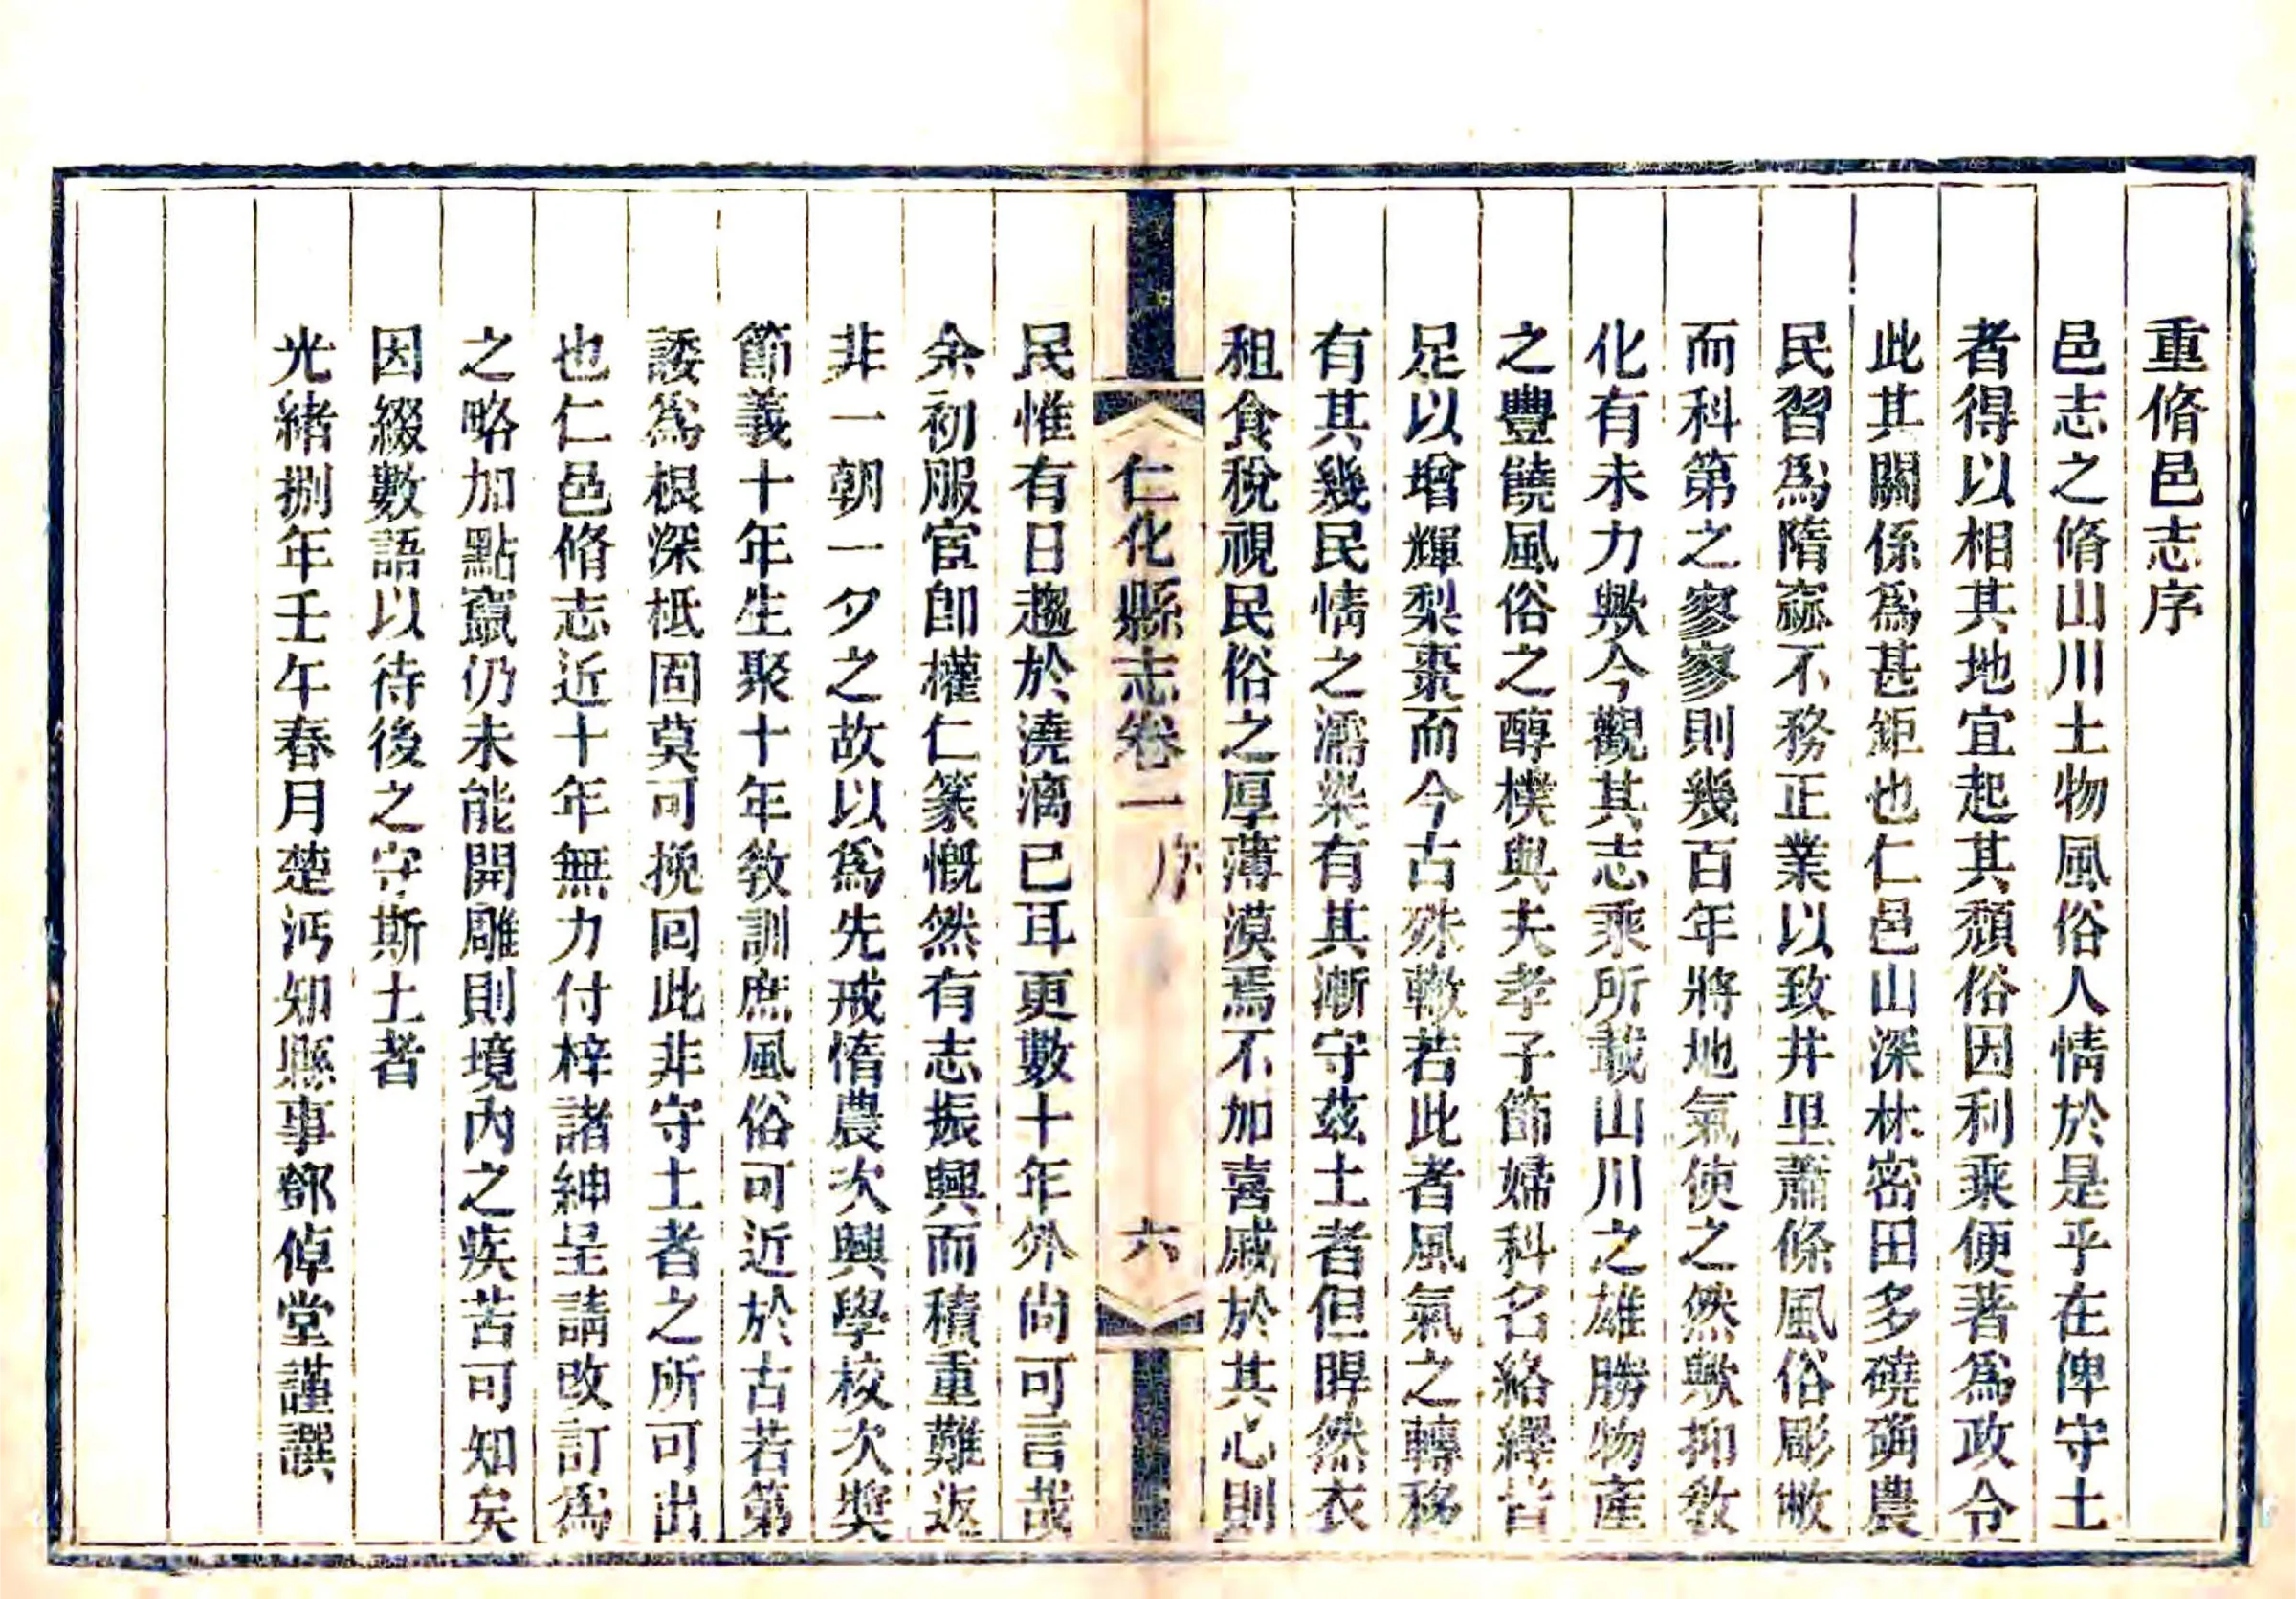 重脩邑志序
邑志之脩山川土物風俗人情於是乎在俾守土
者得以相其地宜起其頹俗因利乘便著爲政令
此其關係爲甚鉅也仁邑山深林密田多磽确農
民習爲隋窳不務正業以致井里蕭條風俗彫敝
而科第之寥寥則幾百年將地氣使之然歟抑敎
化有未力歟今觀其志乘所載山川之雄勝物產
之豐饒風俗之醇樸與夫孝子節婦科名絡繹皆
足以增輝梨棗而今古殊轍若此者風氣之轉移
有其幾民情之濡染有其漸守茲土者但睅然衣
租食稅視民俗之厚薄漠焉不加喜戚於其心則
仁化縣志卷一 序 六
民惟有日趨於澆漓已耳更數十年外尙可言哉
余初服官卽權仁篆慨然有志振興而積重難返
非一朝一夕之故以爲先戒惰農次興學校次獎
節義十年生聚十年敎訓庶風俗可近於古若第
諉爲根深柢固莫可挽回此非守土者之所可出
也仁邑脩志近十年無力付梓諸紳呈請改訂爲
之略加點竄仍未能開雕則境內之疾苦可知矣
因綴數語以待後之守斯土者
光緖捌年壬午春月楚沔知縣事鄧倬堂謹譔